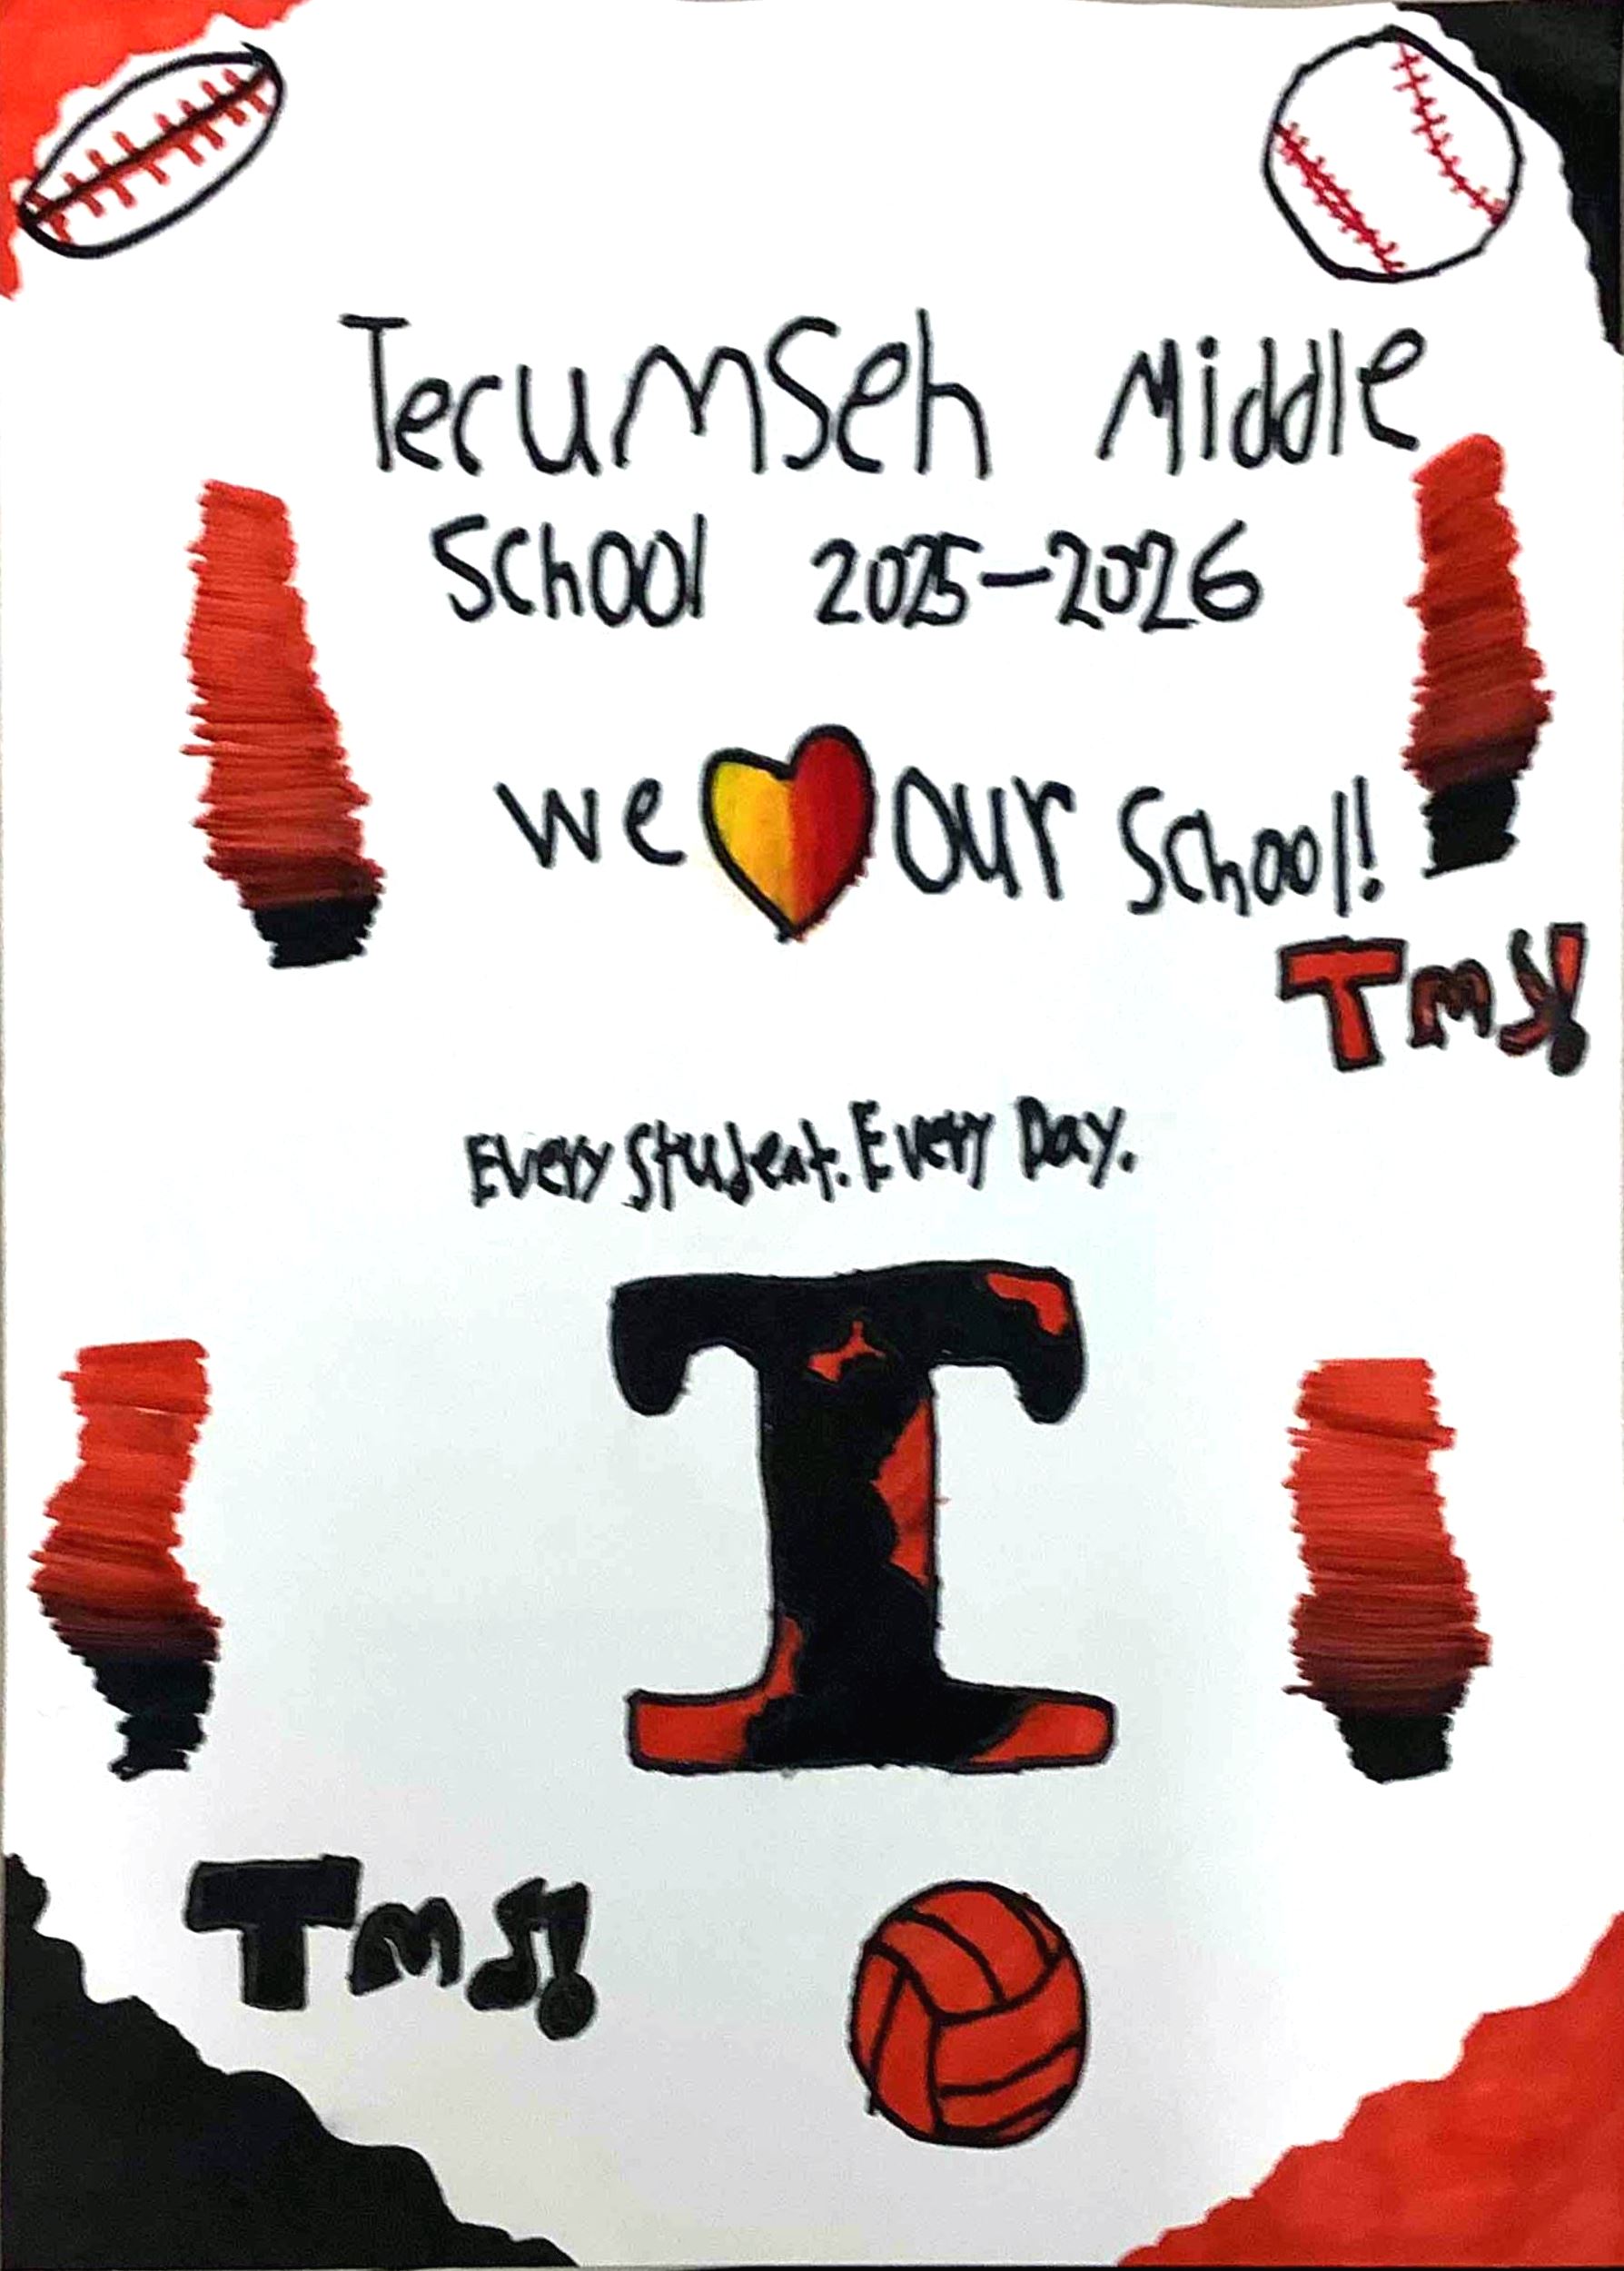 Tecumseh Middle
School 2025-2026
We our School!
TMS!
Every Student. Every Day.
T
TMS!